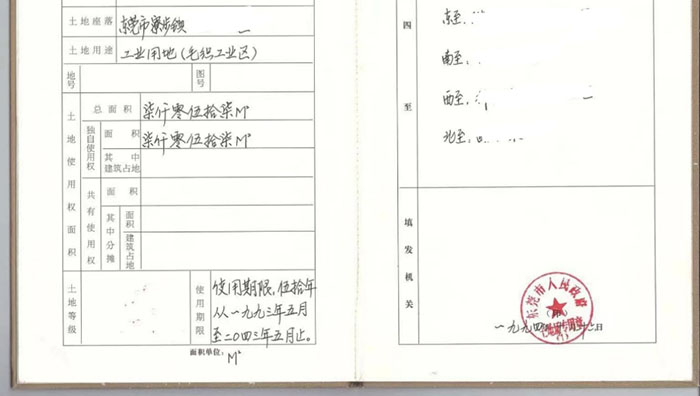 土地座落 东莞市寮步镇
土地用途 工业用地(毛织工业区)
地号 图号
土地使用权面积
总面积 柒仟零伍拾柒M²
独自使用权 面积 柒仟零伍拾柒M²
其中建筑占地
共有使用权 面积
其中分摊 面积
建筑占地
土地等级
使用期限 使用期限,伍拾年
从一九九三年五月
至二〇四三年五月止。
面积单位: M²
四至
东至:
南至:
西至:
北至:
填发机关
东莞市人民政府
(印)
一九九四年
日